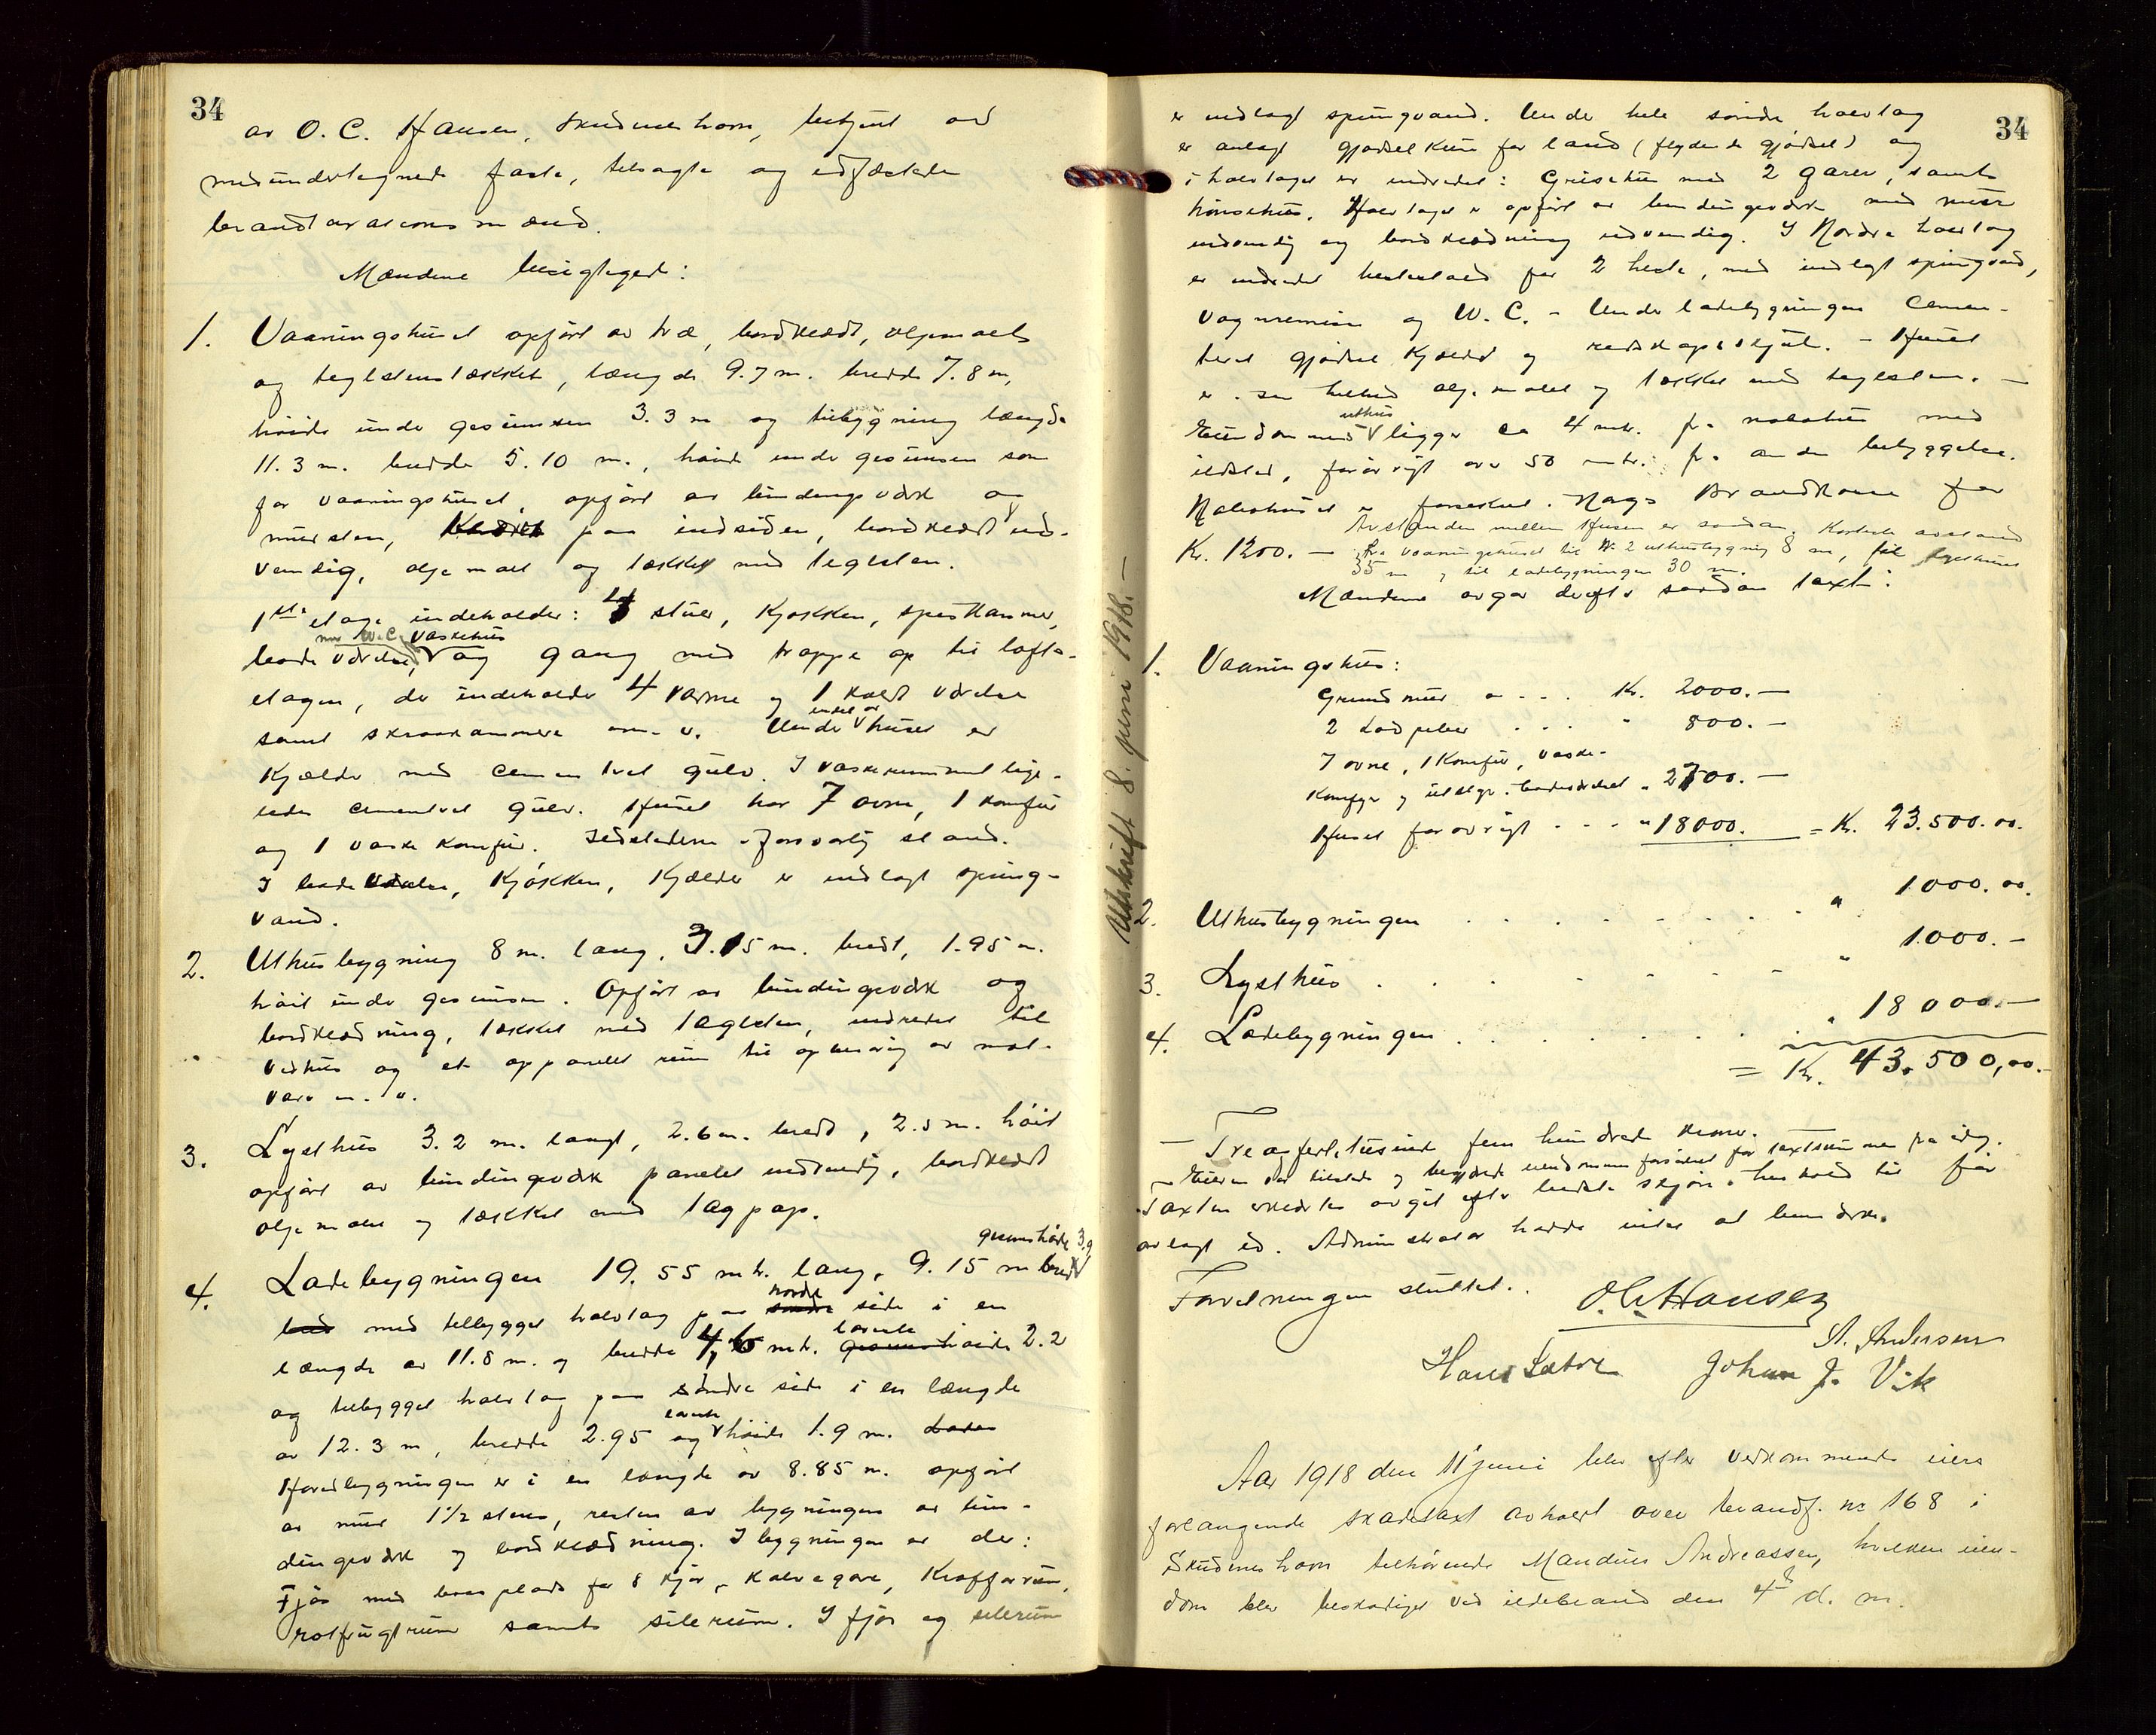 34
av O. C. Hansen, Skudeneshavn, betjent av
medundertegnede faste, tilsagte og edfæstede
brandtaxationsmænd.
Mændene besigtiget:
1. Vaaningshuset opført av træ, bordklædt, oljemalt
og teglstenstækket, længde 9.7 m. bredde 7.8 m,
høide under gesimsen 3.3 m og tilbygning længde
11.3 m. bredde 5.10 m., høide under gesimsen som
for vaaningshuset, opført av bindingsværk og
mursten, paa indsiden, bordklædt ud-
vendig, oljemalt og tækket med teglsten.
1ste etage indeholder: 4 stuer, kjøkken, spiskammer,
med W.C. vaskehus
badeværelse, og gang med trappe op til lofts-
etagen, der indeholder 4 varme og 1 kaldt værelse
samt skraakammere m. v. Under endel av huset er
kjælder med cementert gulv. I vaskerummet lige-
ledes cementert gulv. Huset har 7 ovne, 1 komfur
og 1 vaske komfur. Ildstederne i forsvarlig stand.
I badeværelse, Kjøkken, Kjælder er indlagt spring-
vand.
2. Uthusbygning 8 m. lang, 3.15 m. bredt, 1.95 m.
høit under gesimsen. Opført av bindingsværk og
bordklædning, tækket med taglsten, indredet til
vedhus og et oppanelet rum til opbevaring av mat-
varer m. v.
3. Lysthus 3.2 m. langt, 2.6 m. bredt, 2.5 m. høit
opført av bindingsværk panelet indvendig, bordklædt
oljemalt og tækket med tagpap.
gesimshøide 3.9
4. Ladebygningen 19.55 mtr. lang, 9.15 m bred
med tilbygget halvtag paa nordre side i en
længde av 11.8 m. og bredde 4,6 mtr. laveste høide 2.2
og tilbygget halvtag paa søndre side i en længde
av 12.3 m, bredde 2.95 og laveste høide 1.9 m.
Hovedbygningen er i en længde av 8.85 m. opført
av mur 1½ stens, resten av bygningen av bin-
dingsværk og bordklædning. I bygningen er der:
Fjøs med baasplads for 8 kjør, kalvegare, Kraftforrum,
rotfrugtrum samt silorum. I fjøs og silorum
34
er indlagt springvand. Under hele søndre halvtag
er anlagt gjødselkum for land (flydende gjødsel) og
i halvtaget er indredet: Grisehus med 2 garer, samt
hønsehus. Halvtaget er opført av bindingsværk med mur
indvendig og bordklædning udvendig. I Nordre halvtag
er indredet hestestald for 2 heste, med indlagt springvand,
vognremise og W. C. - Under ladebygningen cemen-
teret gjødselkjælder og redskapsskjul. - Huset
er i sin helhed oljemalet og tækket med teglsten. -
Eiendommens uthus ligger ca 4 mtr. fra nabohus med
ildsted, forøvrigt over 50 mtr. fra anden bebyggelse.
Nabohuset er forsikret i Norges Brandkasse for
Kr. 1200. - Avstanden mellem Husene er saadan: Korteste avstand
fra vaaningshuset til Nr. 2 uthusbygning 8 m, til lysthuset
35 m og til ladebygningen 30 m.
Mændene avgav derefter saadan taxt:
Utskrift 8. juni 1918. -
1. Vaaningshus:
Grundmur . . . Kr. 2000. -
2 Lodpiber . . . " 800. -
7 ovne, 1 Komfur, vaske-
komfyr og utstyr i badeværelset " 2700. -
Huset forøvrigt . . . " 18000. = Kr. 23.500.00.
2. Uthusbygningen . . . " 1000.00.
3. Lysthus . . . " 1000. -
4. Ladebygningen . . . " 18000. -
= Kr. 43.500,00. -
- Treogfertitusinde fem hundrede kroner. -
- Eieren var tilstede og begjærte eiendommen forsikret for taxtsummen fra idag.
Taxten erklærtes avgit efter bedste skjøn i henhold til før
avlagt ed. Administrator hadde intet at bemerke.
Forretningen sluttet.
O. C. Hansen
A. Andersen
Hans Sætre Johan J. Vik
Aar 1918 den 11 juni blev efter vedkommende eiers
forlangende skadetaxt avholdt over brandf. nr 168 i
Skudeneshavn tilhørende Mandius Andreassen, hvilken eien-
dom blev beskadiget ved ildebrand den 4de d. m.